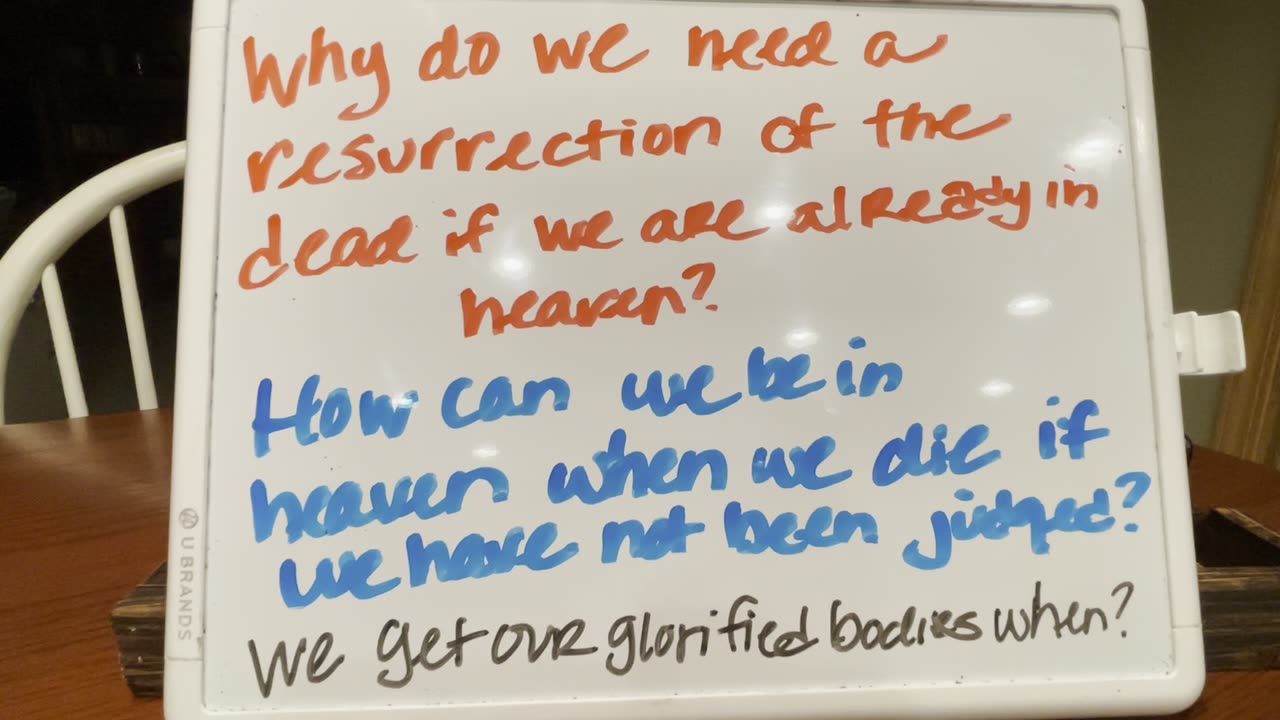 Why do we need a
resurrection of the
dead if we are already in
heaven?
How can we be in
heaven when we die if
we have not been judged?
We get our glorified bodies when?
U BRANDS